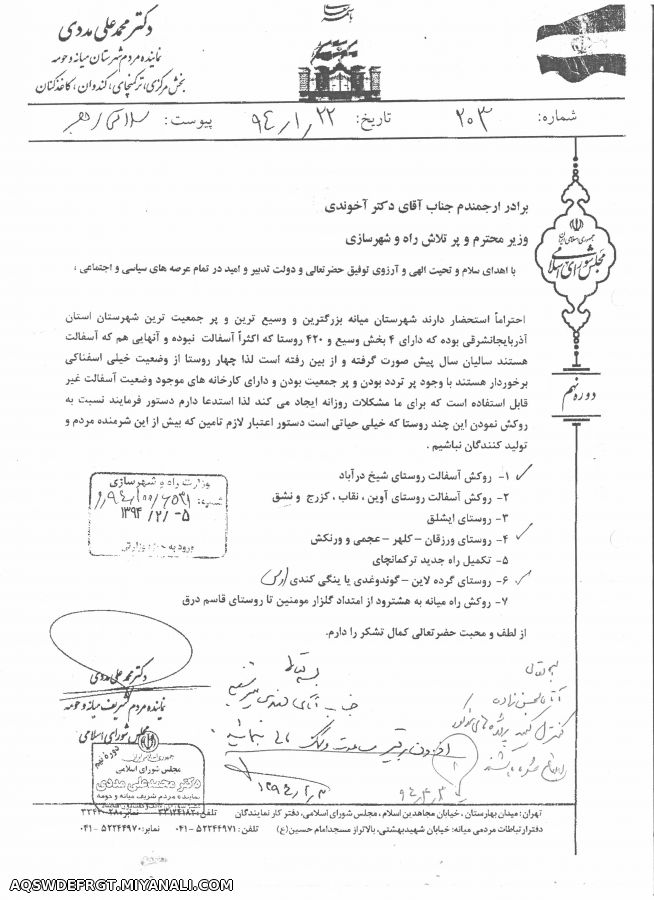 دکتر محمد علی مددی
نماینده مردم شهرستان میانه و حومه
بخش مرکزی، ترکمانچای، کندوان، کاغذکنان
شماره: ۲۰۳ تاریخ: ۹۴/۱/۲۲ پیوست:
جمهوری اسلامی ایران
مجلس شورای اسلامی
دوره نهم
برادر ارجمندم جناب آقای دکتر آخوندی
وزیر محترم و پر تلاش راه و شهرسازی
با اهدای سلام و تحیت الهی و آرزوی توفیق حضرتعالی و دولت تدبیر و امید در تمام عرصه های سیاسی و اجتماعی ؛
احتراماً استحضار دارند شهرستان میانه بزرگترین و وسیع ترین و پر جمعیت ترین شهرستان استان
آذربایجانشرقی بوده که دارای ۴ بخش وسیع و ۴۲۰ روستا که اکثراً آسفالت نبوده و آنهایی هم که آسفالت
هستند سالیان سال پیش صورت گرفته و از بین رفته است لذا چهار روستا از وضعیت خیلی اسفناکی
برخوردار هستند با وجود پر تردد بودن و پر جمعیت بودن و دارای کارخانه های موجود وضعیت آسفالت غیر
قابل استفاده است که برای ما مشکلات روزانه ایجاد می کند لذا استدعا دارم دستور فرمایند نسبت به
روکش نمودن این چند روستا که خیلی حیاتی است دستور اعتبار لازم تامین که بیش از این شرمنده مردم و
تولید کنندگان نباشیم .
۱- روکش آسفالت روستای شیخ درآباد
۲- روکش آسفالت روستای آوین ، نقاب ، کزرج و نشق
۳- روستای ایشلق
۴- روستای ورزقان – کلهر – عجمی و ورنکش
۵- تکمیل راه جدید ترکمانچای
۶- روستای گرده لاین – گوندوغدی یا ینگی کندی
۷- روکش راه میانه به هشترود از امتداد گلزار مومنین تا روستای قاسم درق
وزارت راه و شهرسازی
شماره:
۱۳۹۴ /۲/ -۵
ورود به حوزه وزارتی
از لطف و محبت حضرتعالی کمال تشکر را دارم.
دکتر محمد علی مددی
نماینده مردم شریف میانه و حومه
مجلس شورای اسلامی
دوره نهم
جمهوری اسلامی ایران
مجلس شورای اسلامی
دکتر محمدعلی مددی
نماینده مردم شریف میانه و حومه
بسمه تعالی
۹۴,۳,۳
۱۳۹۴,۲,۳
تهران: میدان بهارستان ، خیابان مجاهدین اسلام ، مجلس شورای اسلامی، دفتر کار نمایندگان
دفتر ارتباطات مردمی میانه: خیابان شهیدبهشتی، بالاتر از مسجد امام حسین(ع) تلفن : ۵۲۲۴۴۹۷۱ -۰۴۱ نمابر: ۵۲۲۴۴۹۷۰ -۰۴۱
AQSWDEFRGT.MIYANALI.COM